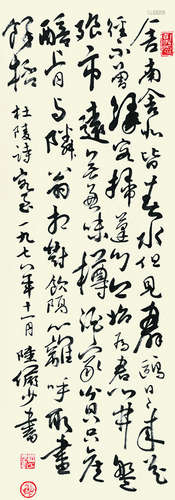 舍南舍北皆春水但见群鸥日日来花
径不曾缘客扫蓬门今始为君开盘
飧市远无兼味樽酒家贫只旧
醅肯与邻翁相对饮隔篱呼取尽
余杯
杜陵诗客至一九七八年十一月陆俨少书